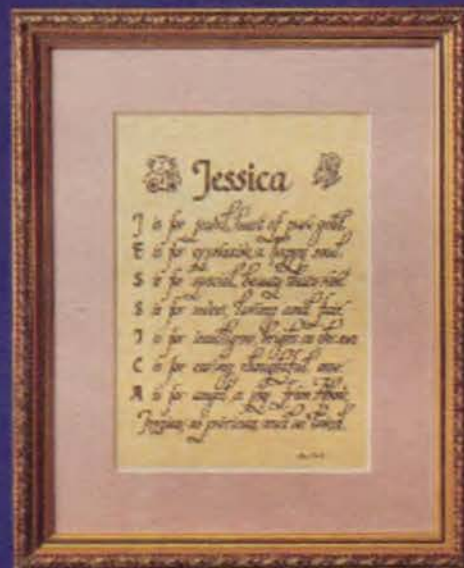 Jessica
J is for jewel, heart of pure gold,
E is for expressive, a happy soul.
S is for special, beauty
S is for sweet, loving and fair,
I is for intelligence, bright as the sun
C is for caring, thoughtful one.
A is for angel, a joy from above,
Jessica, so precious and so loved.